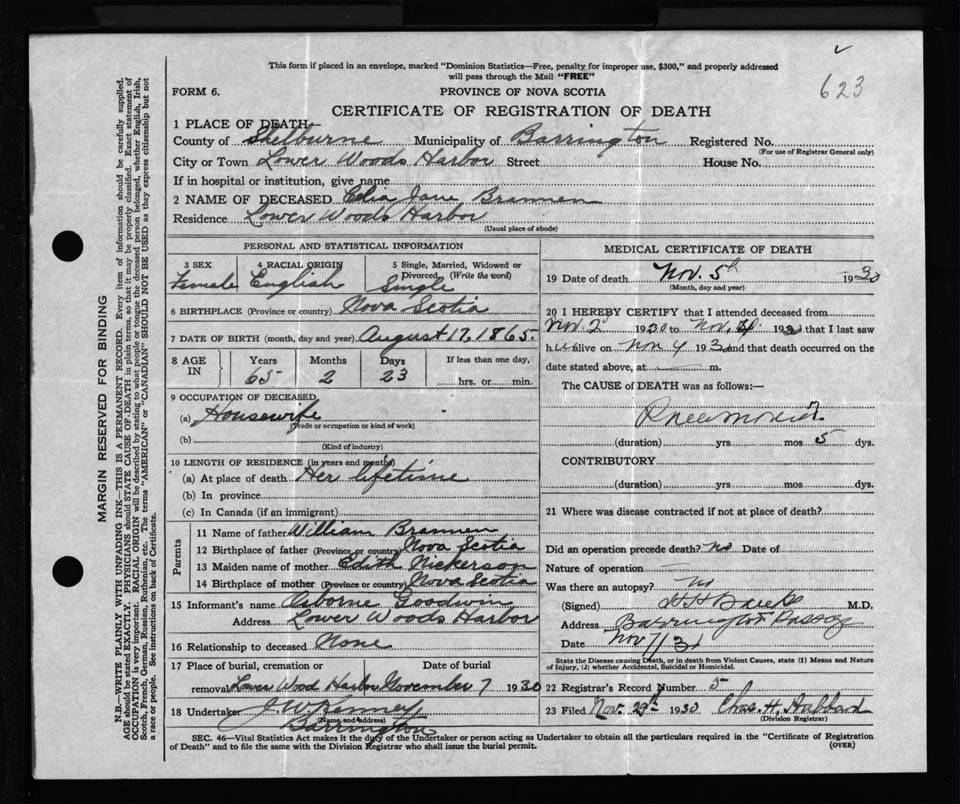 This form if placed in an envelope, marked "Dominion Statistics—Free, penalty for improper use, $300," and properly addressed
will pass through the Mail "FREE"
623
FORM 6. PROVINCE OF NOVA SCOTIA
CERTIFICATE OF REGISTRATION OF DEATH
1 PLACE OF DEATH
County of Shelburne Municipality of Barrington Registered No.
(For use of Registrar General only)
City or Town Lower Woods Harbor Street House No.
If in hospital or institution, give name
2 NAME OF DECEASED Celia Jane Brannen
Residence Lower Woods Harbor
(Usual place of abode)
PERSONAL AND STATISTICAL INFORMATION
3 SEX 4 RACIAL ORIGIN 5 Single, Married, Widowed or Divorced (Write the word)
Female English Single
6 BIRTHPLACE (Province or country) Nova Scotia
7 DATE OF BIRTH (month, day and year) August 17, 1865.
8 AGE IN Years Months Days If less than one day,
65 2 23 hrs. or min.
9 OCCUPATION OF DECEASED
(a) Housewife
(Trade or occupation or kind of work)
(b)
(Kind of industry)
10 LENGTH OF RESIDENCE (in years and months)
(a) At place of death Her lifetime
(b) In province
(c) In Canada (if an immigrant)
Parents
11 Name of father William Brannen
12 Birthplace of father (Province or country) Nova Scotia
13 Maiden name of mother Edith Nickerson
14 Birthplace of mother (Province or country) Nova Scotia
15 Informant's name Osborne Goodwin
Address Lower Woods Harbor
16 Relationship to deceased None
17 Place of burial, cremation or Date of burial
removal Lower Wood Harbor November 7 1930
18 Undertaker
(Name and address)
Barrington
MEDICAL CERTIFICATE OF DEATH
19 Date of death Nov. 5th 1930
(Month, day and year)
20 I HEREBY CERTIFY that I attended deceased from
Nov. 2 1930 to Nov. 4 1930 that I last saw
her alive on Nov 4 1930 and that death occurred on the
date stated above, at m.
The CAUSE of DEATH was as follows:—
Pneumonia
(duration) yrs. mos 5 dys.
CONTRIBUTORY
(duration) yrs. mos. dys.
21 Where was disease contracted if not at place of death?
Did an operation precede death? No Date of
Nature of operation —
Was there an autopsy? No
(Signed) M.D.
Address Barrington Passage
Date Nov 7/31
State the Disease causing Death, or in death from Violent Causes, state (1) Means and Nature
of Injury, (2) whether Accidental, Suicidal or Homicidal.
22 Registrar's Record Number 5
23 Filed Nov. 29th 1930 Chas. H. Stoddard
(Division Registrar)
SEC. 46—Vital Statistics Act makes it the duty of the Undertaker or person acting as Undertaker to obtain all the particulars required in the "Certificate of Registration
of Death" and to file the same with the Division Registrar who shall issue the burial permit. (OVER)
MARGIN RESERVED FOR BINDING
N.B.—WRITE PLAINLY WITH UNFADING INK—THIS IS A PERMANENT RECORD. Every item of information should be carefully supplied.
AGE should be stated EXACTLY. PHYSICIANS should STATE CAUSE OF DEATH in plain terms, so that it may be properly classified. Exact statement of
OCCUPATION is very important. RACIAL ORIGIN will be described by stating to what people or tongue the deceased person belonged, whether English, Irish,
Scotch, French, German, Russian, Ruthenian, etc. The terms "AMERICAN" or "CANADIAN" SHOULD NOT BE USED as they express citizenship but not
a race or people. See instructions on back of Certificate.